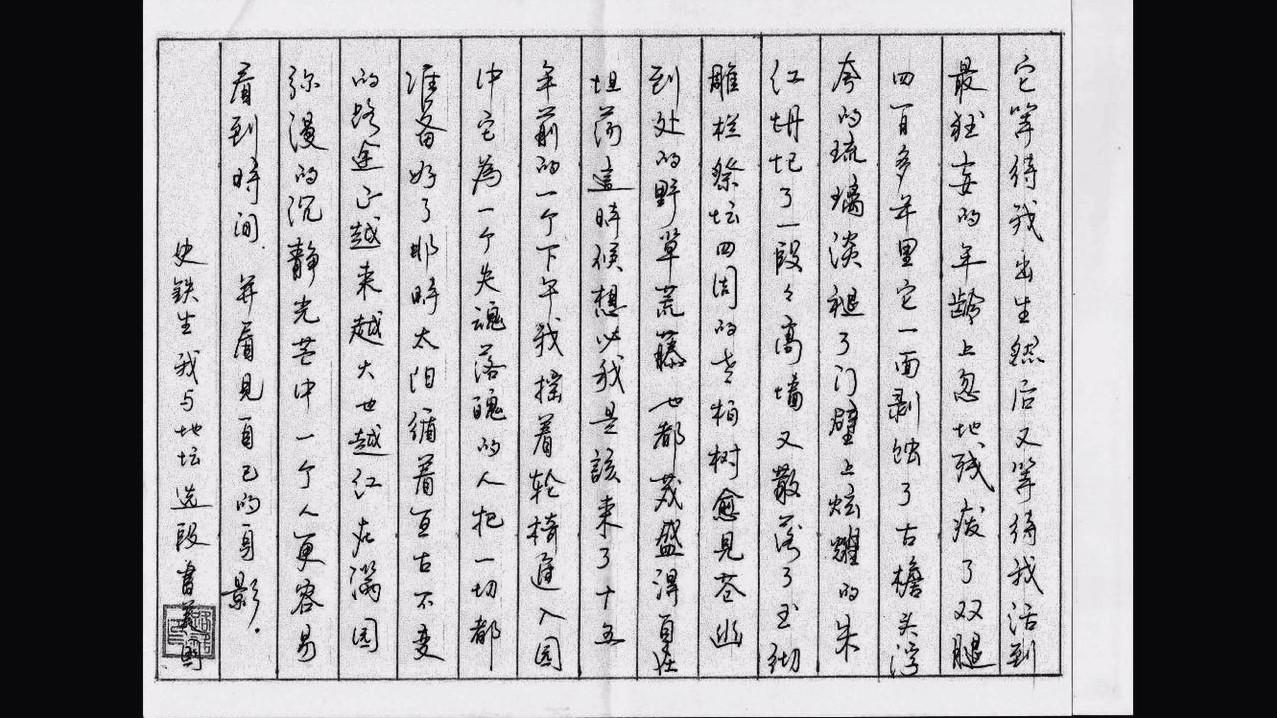 它等待我出生然后又等待我活到
最狂妄的年龄上忽地残废了双腿
四百多年里它一面剥蚀了古檐头浮
夸的琉璃淡褪了门壁上炫耀的朱
红坍圮了一段々高墙又散落了玉砌
雕栏祭坛四周的老柏树愈见苍幽
到处的野草荒藤也都茂盛得自在
坦荡這時候想必我是該来了十五
年前的一个下午我摇着轮椅進入园
中它為一个失魂落魄的人把一切都
准备好了那時太阳循着亘古不变
的路途正越来越大也越红在满园
弥漫的沉静光芒中一个人更容易
看到時间.并看見自己的身影.
史铁生我与地坛选段書